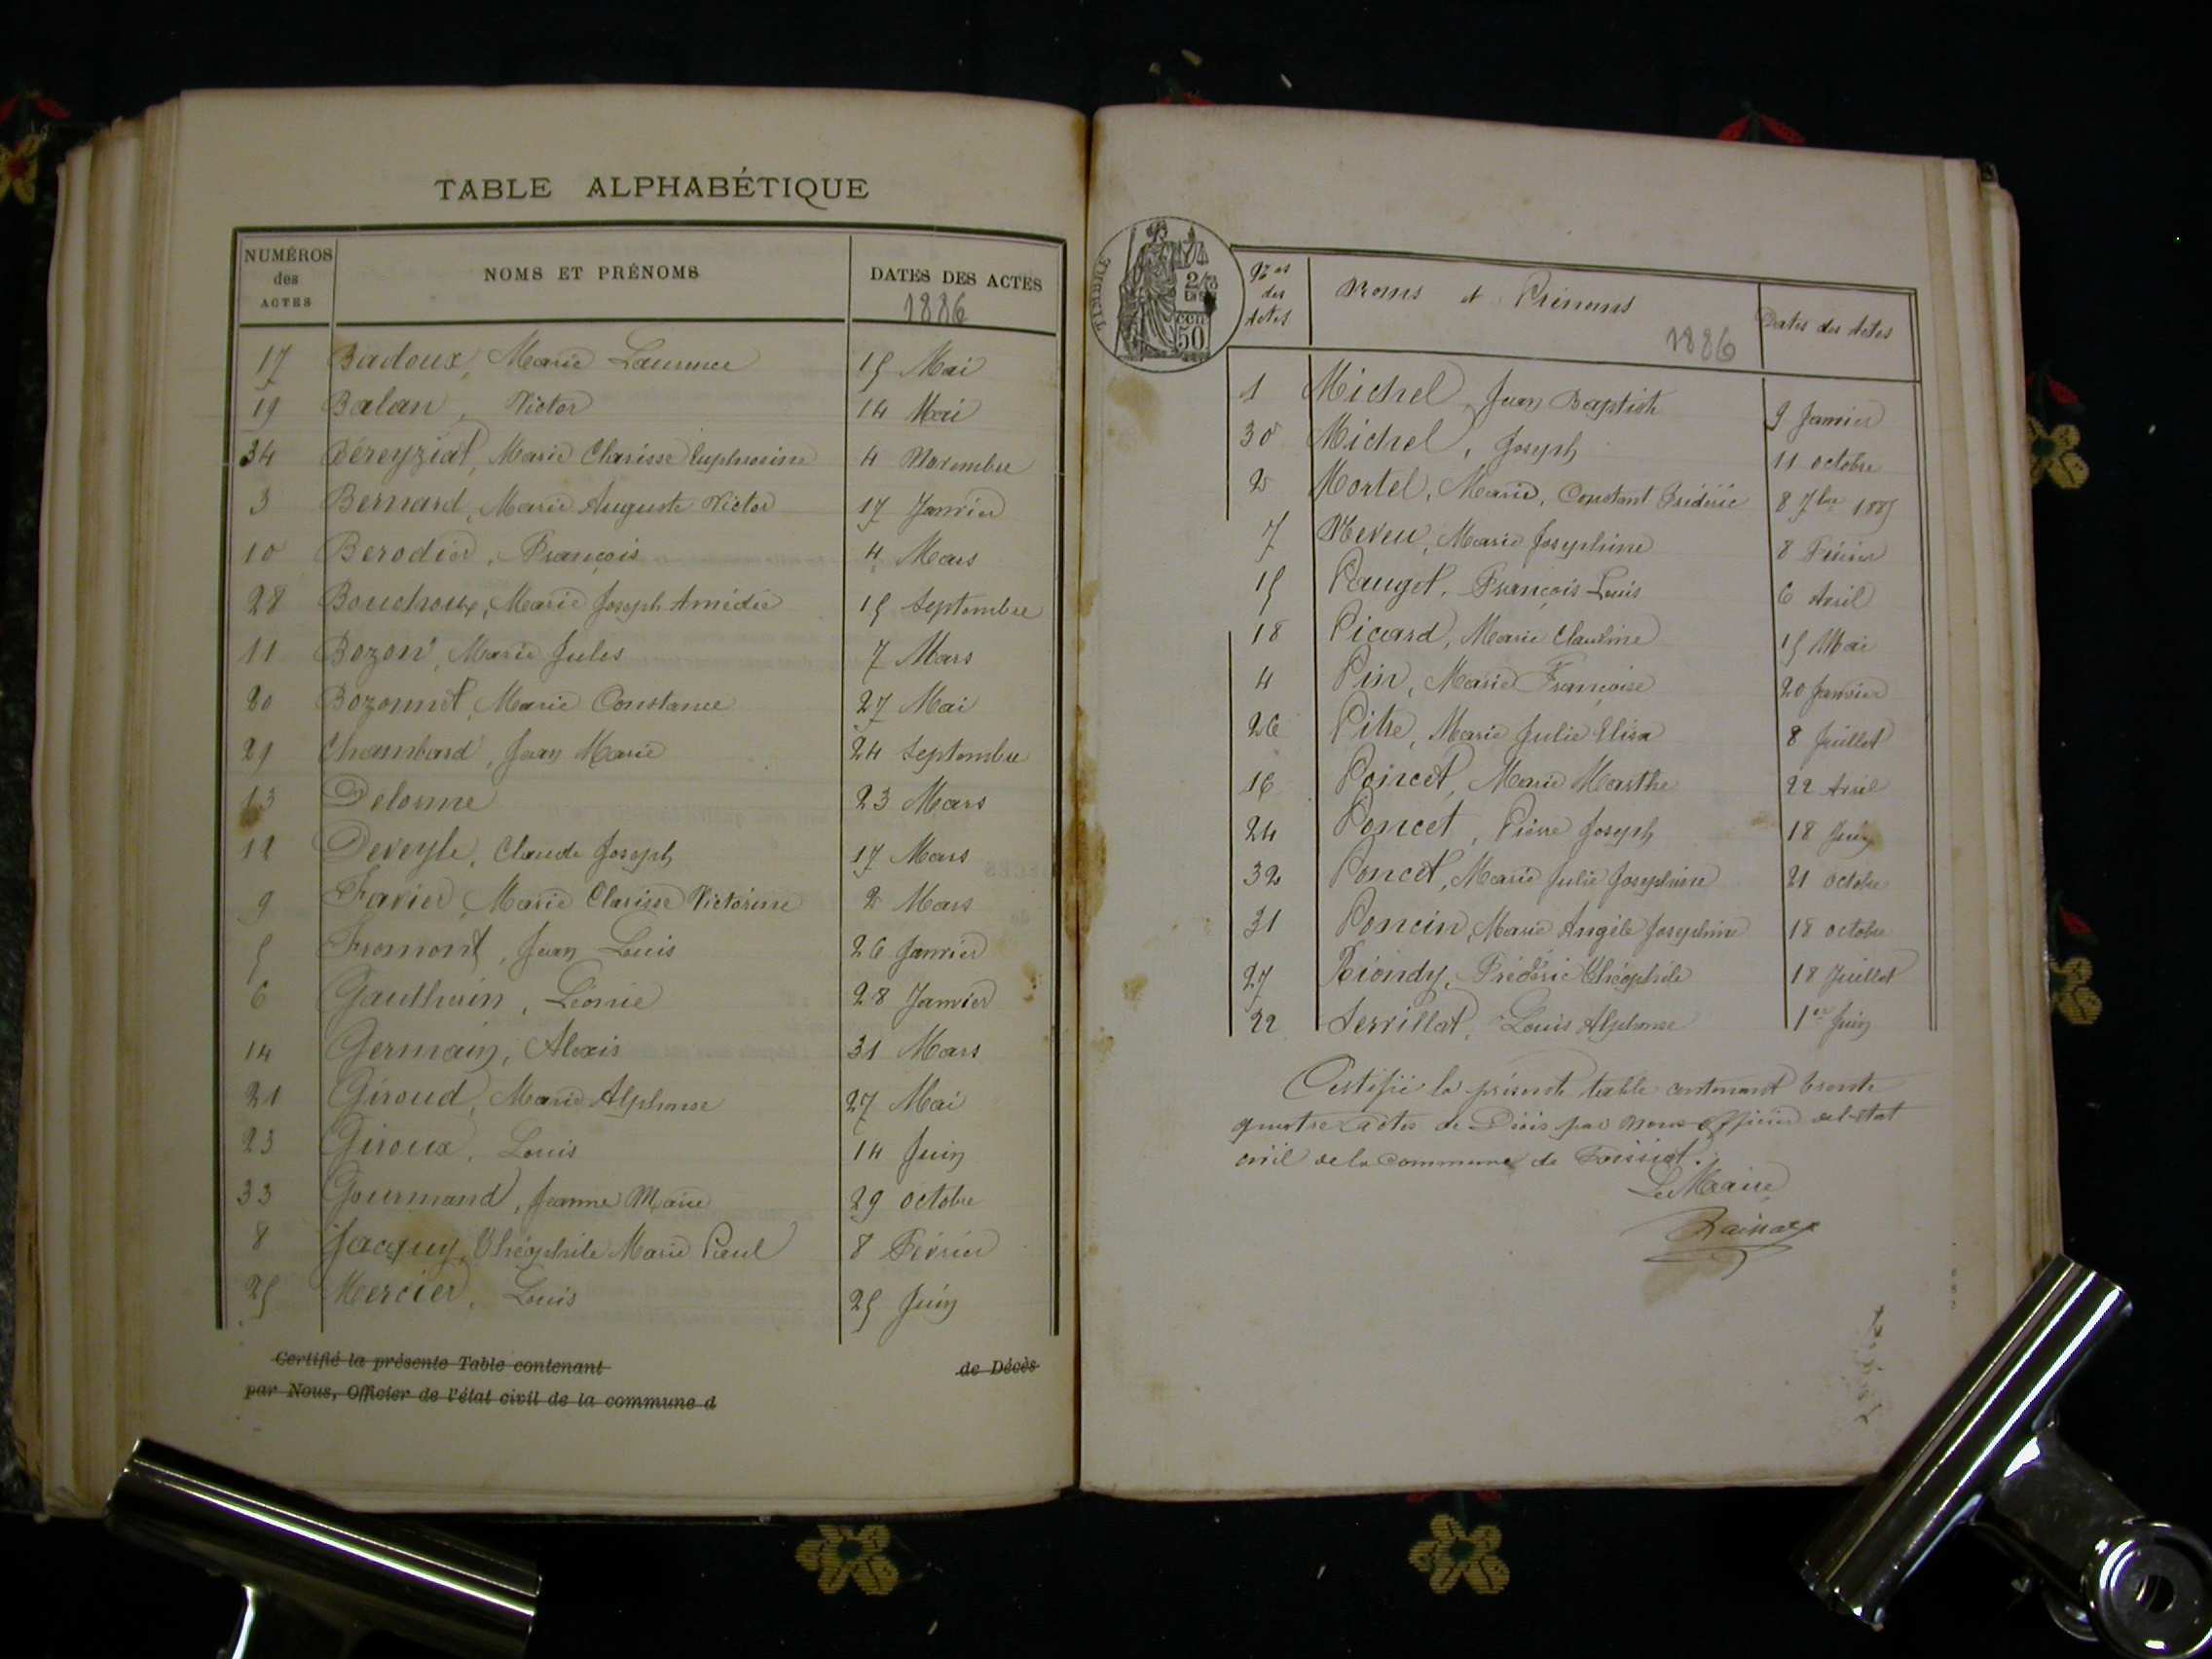 TABLE ALPHABÉTIQUE
NUMÉROS des ACTES NOMS ET PRÉNOMS DATES DES ACTES
1886
17 Badoux, Marie Laurence 15 Mai
19 Balan, Victor 14 Mai
34 Béreyziat, Marie Clarisse Euphrosine 4 Novembre
3 Bernard, Marie Auguste Victor 17 Janvier
10 Berodier, François 4 Mars
28 Bouchoux, Marie Joseph Amédée 15 Septembre
11 Bozon, Marie Jules 7 Mars
20 Bozonnet, Marie Constance 27 Mai
29 Chambard, Jean Marie 24 Septembre
13 Delorme 23 Mars
12 Deveyle, Claude Joseph 17 Mars
9 Favier, Marie Clarisse Victorine 2 Mars
5 Fromont, Jean Louis 26 Janvier
6 Gauthain, Léonie 28 Janvier
14 Germain, Alexis 31 Mars
21 Giroud, Marie Alphonse 27 Mai
23 Giroux, Louis 14 Juin
33 Gourmand, Jeanne Marie 29 octobre
8 Jacquy, Théophile Marie Paul 8 Février
25 Mercier, Louis 25 Juin
Certifié la présente Table contenant de Décès
par Nous, Officier de l'état civil de la commune d
TIMBRE
2/10 EN SUS
50 CEN
Nos des Actes Noms et Prénoms Dates des Actes
1886
1 Michel, Jean Baptiste 9 Janvier
30 Michel, Joseph 11 octobre
2 Mortel, Marie, Constant Frédéric 8 7bre 1885
7 Neveu, Marie Josephine 8 Février
15 Pauget, François Louis 6 Avril
18 Picard, Marie Claudine 15 Mai
4 Pin, Marie Françoise 20 Janvier
26 Pitre, Marie Julie Elisa 8 Juillet
16 Poncet, Marie Marthe 22 Avril
24 Poncet, Pierre Joseph 18 Juin
32 Poncet, Marie Julie Josephine 21 octobre
31 Poncin, Marie Angèle Josephine 18 octobre
27 Riondy, Frédéric Théophile 18 Juillet
22 Serrillat, Louis Alphonse 1er Juin
Certifié la présente table contenant trente
quatre actes de Décès par nous officier de l'état
civil de la commune de Foissiat.
Le Maire